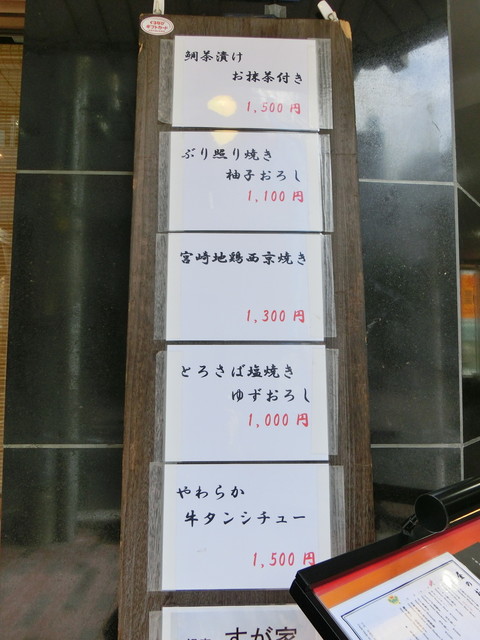 鯛茶漬け
お抹茶付き
1,500円
ぶり照り焼き
柚子おろし
1,100円
宮崎地鶏西京焼き
1,300円
とろさば塩焼き
ゆずおろし
1,000円
やわらか
牛タンシチュー
1,500円
すが家